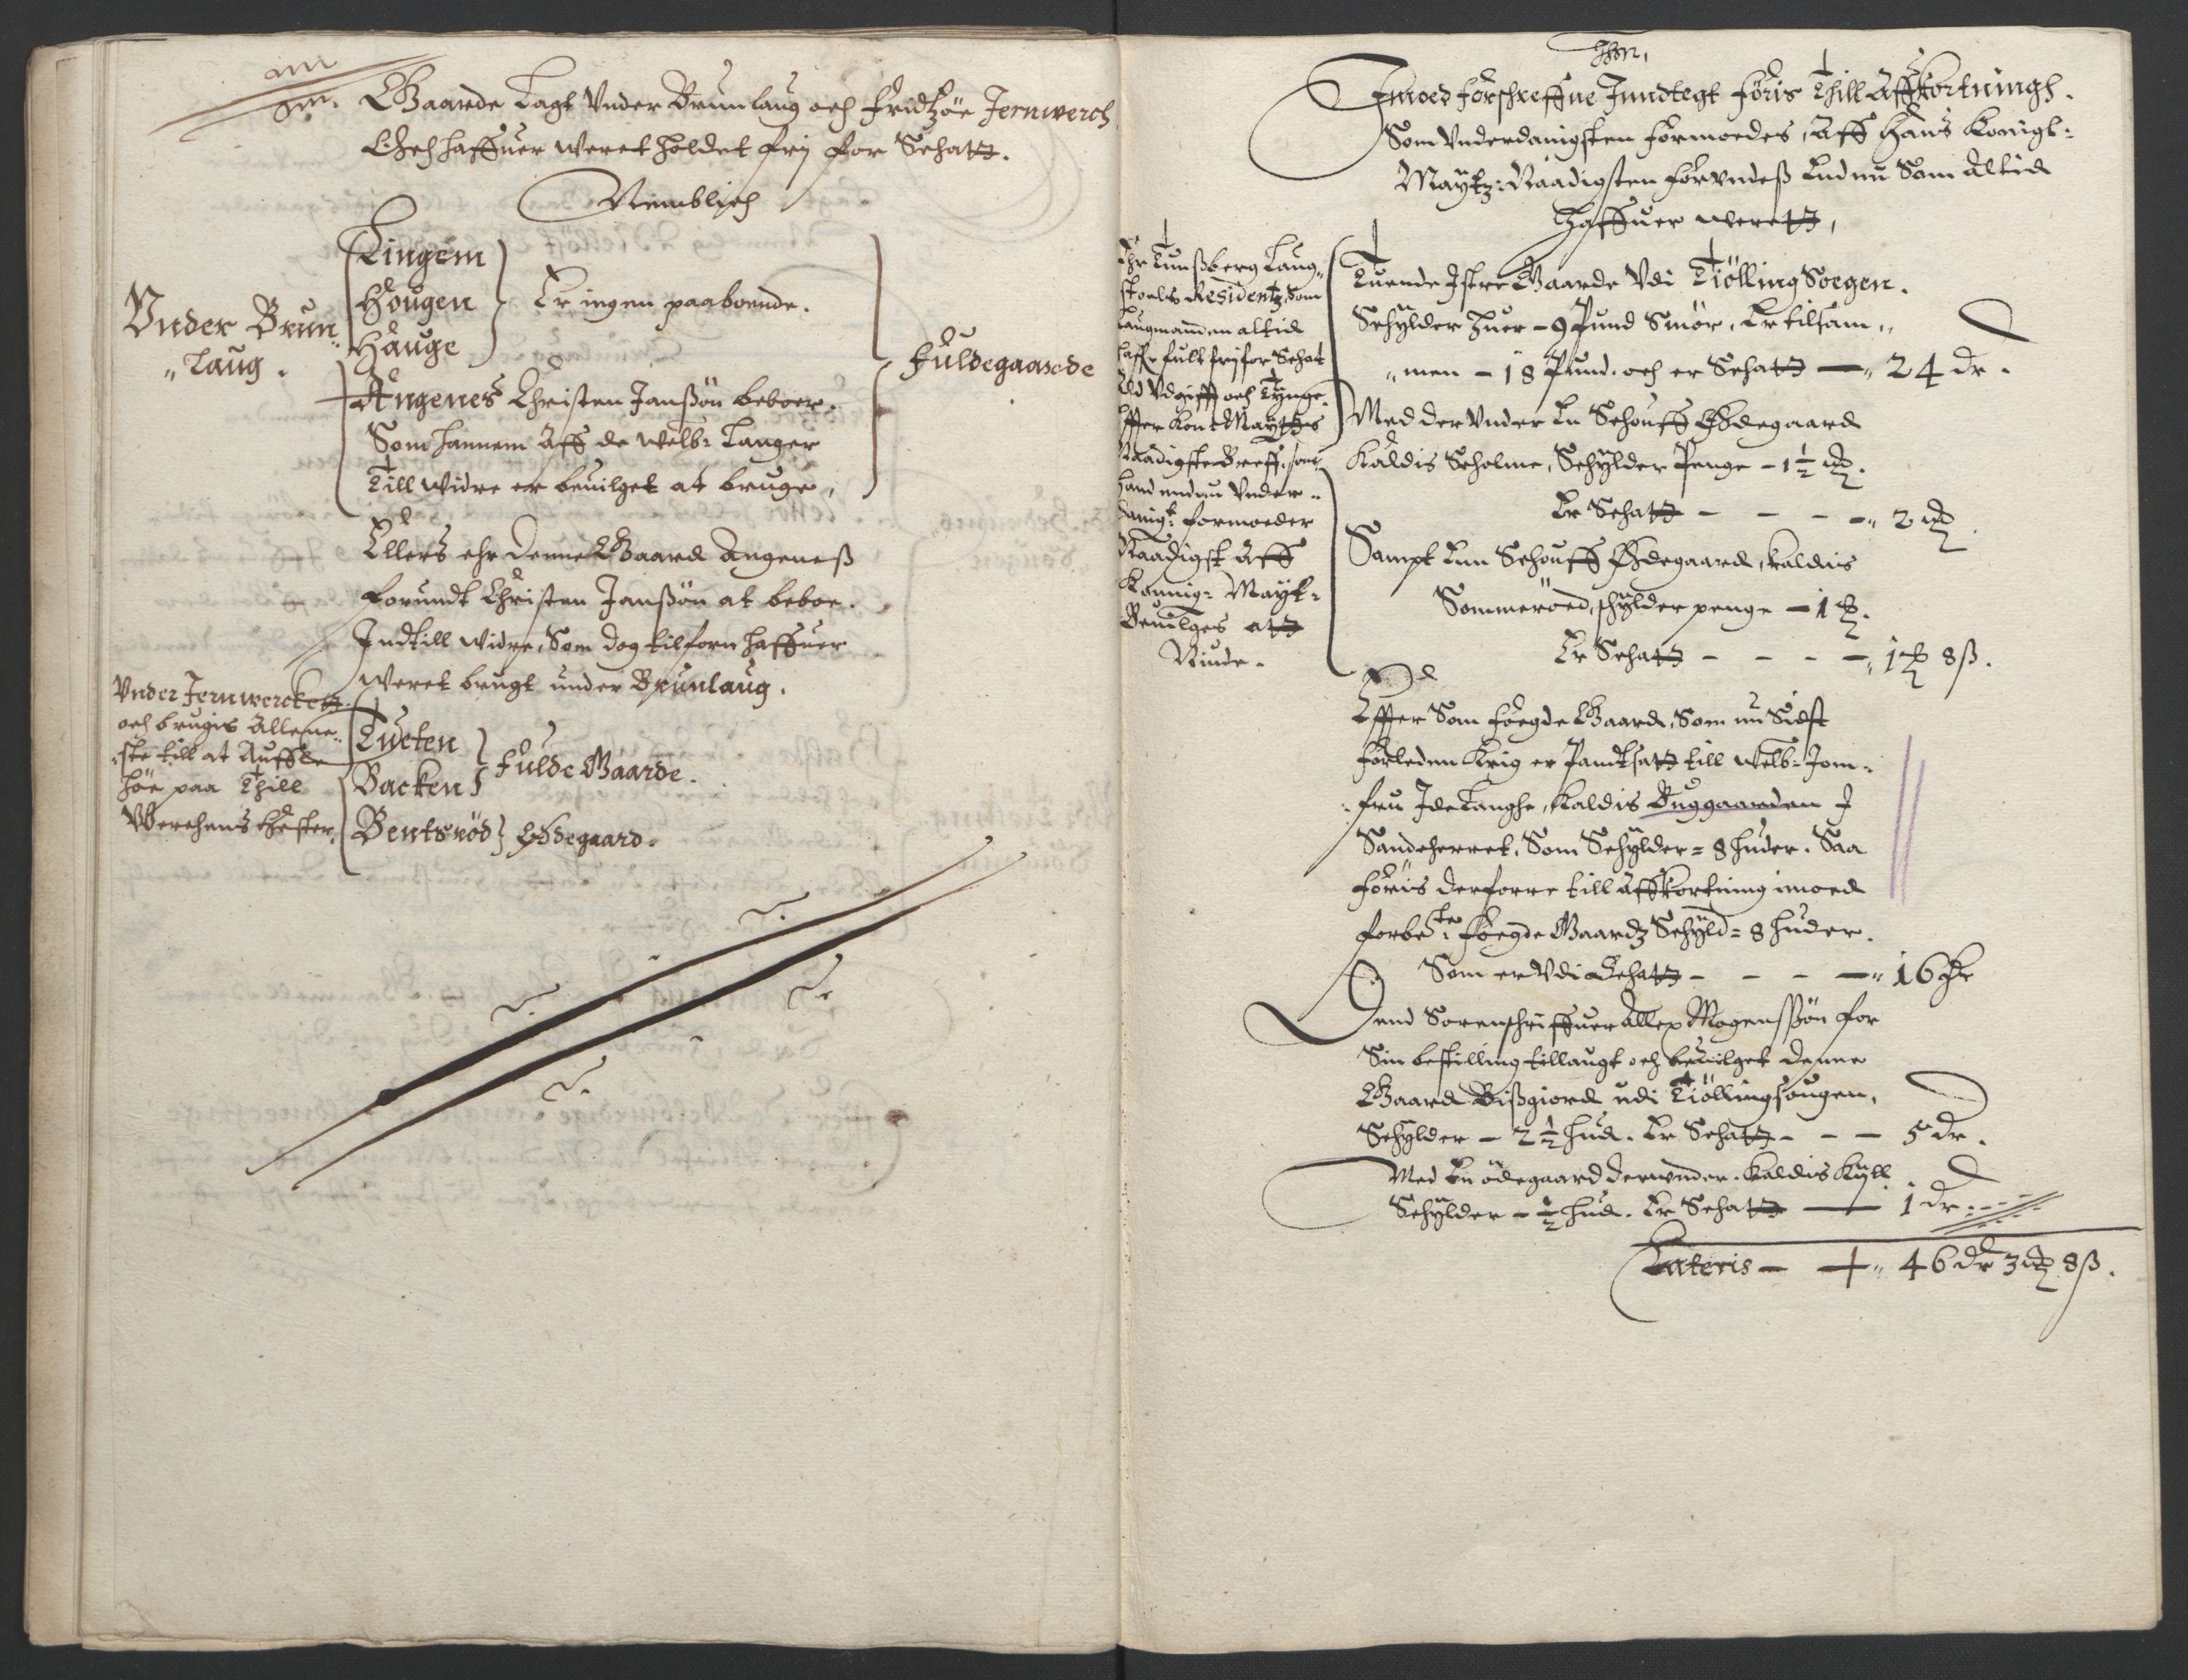 Gaarde Lagt Vnder Brunlaug och Fridtzöe Jernwerch
Och haffuer weret holdet frij for Schatt.
Nemblich
Vnder Brun
laug.
Lingem
Hougen
Hauge
Er ingen paaboende.
Fuldegaarde
Angenes Christen Janßön beboer.
Som hannem Aff de welb: Langer
Till widre er beuilget at bruge,
Ellers ehr denne Gaard Angeneß
forundt Christen Janßön at beboe.
Indtill widre, Som dog tilforn haffuer
weret brugt under Brunlaug.
Vnder Jernwerckett
och brugis Allene
ste till at Auffle
höe paa Thill
Werchens Hester.
Tueten
Backen
Fulde Gaarde.
Bentsröd
Ødegaard.
Imoed forschreffne Inndtegt föris Thill Affkortningh.
Som Vnderdanigsten formoedes, Aff Hans Konigl:
Maytz: Naadigsten forundeß Endnu Som Altid
haffuer werett,
Ehr Tunßberg Laug
stoels Residentz, Som
Laugmanden altid
haffr fult frij for Schat
Och Tynge
Effter Kon: Mayttes
Naadigste Breff, som
hand endnu Vnder
danigt formoeder
Naadigst Aff
Konnig: Mayt:
Beuilges att
Niude.
Tuende Istre Gaarde Vdi Tiölling Soegen.
Schylder huer - 9 Pund Smör, Er tilsam
men - 18 Pund. och er Schatt — 24 dr.
Med der Vnder En Schouff Ødegaard
Kaldis Scholme, Schylder Penge - 1½
Er Schatt - - - 2
Sampt Enn Schouff Ødegaard, kaldis
Sommeröed, schylder penge - 1
Er Schatt - - - 1 8 ß.
Effter Som föegde Gaard, Som nu Sidst
forleden Krig er Pandtsatt till welb: Jom
fru Ide Langhe, Kaldis Buggaarden I
Sandeherret, Som Schylder = 8 huder. Saa
föris derforre till Affkortning imoed
forbete: föegde Gaardz Schyld = 8 huder.
Som er Vdi Schatt - - - 16 dr
Dend Sorenschriffuer Allex Mogenßön for
Sin bestilling tillaugt och beuilget denne
Gaard Bißgiord udi Tiöllingsougen,
Schylder - 2½ hud. Er Schatt - - - 5 dr.
Med En ödegaard derunder. Kaldis Kyll
Schylder - ½ hud. Er Schatt — 1 dr.
Lateris — 46 dr 3 8 ß.